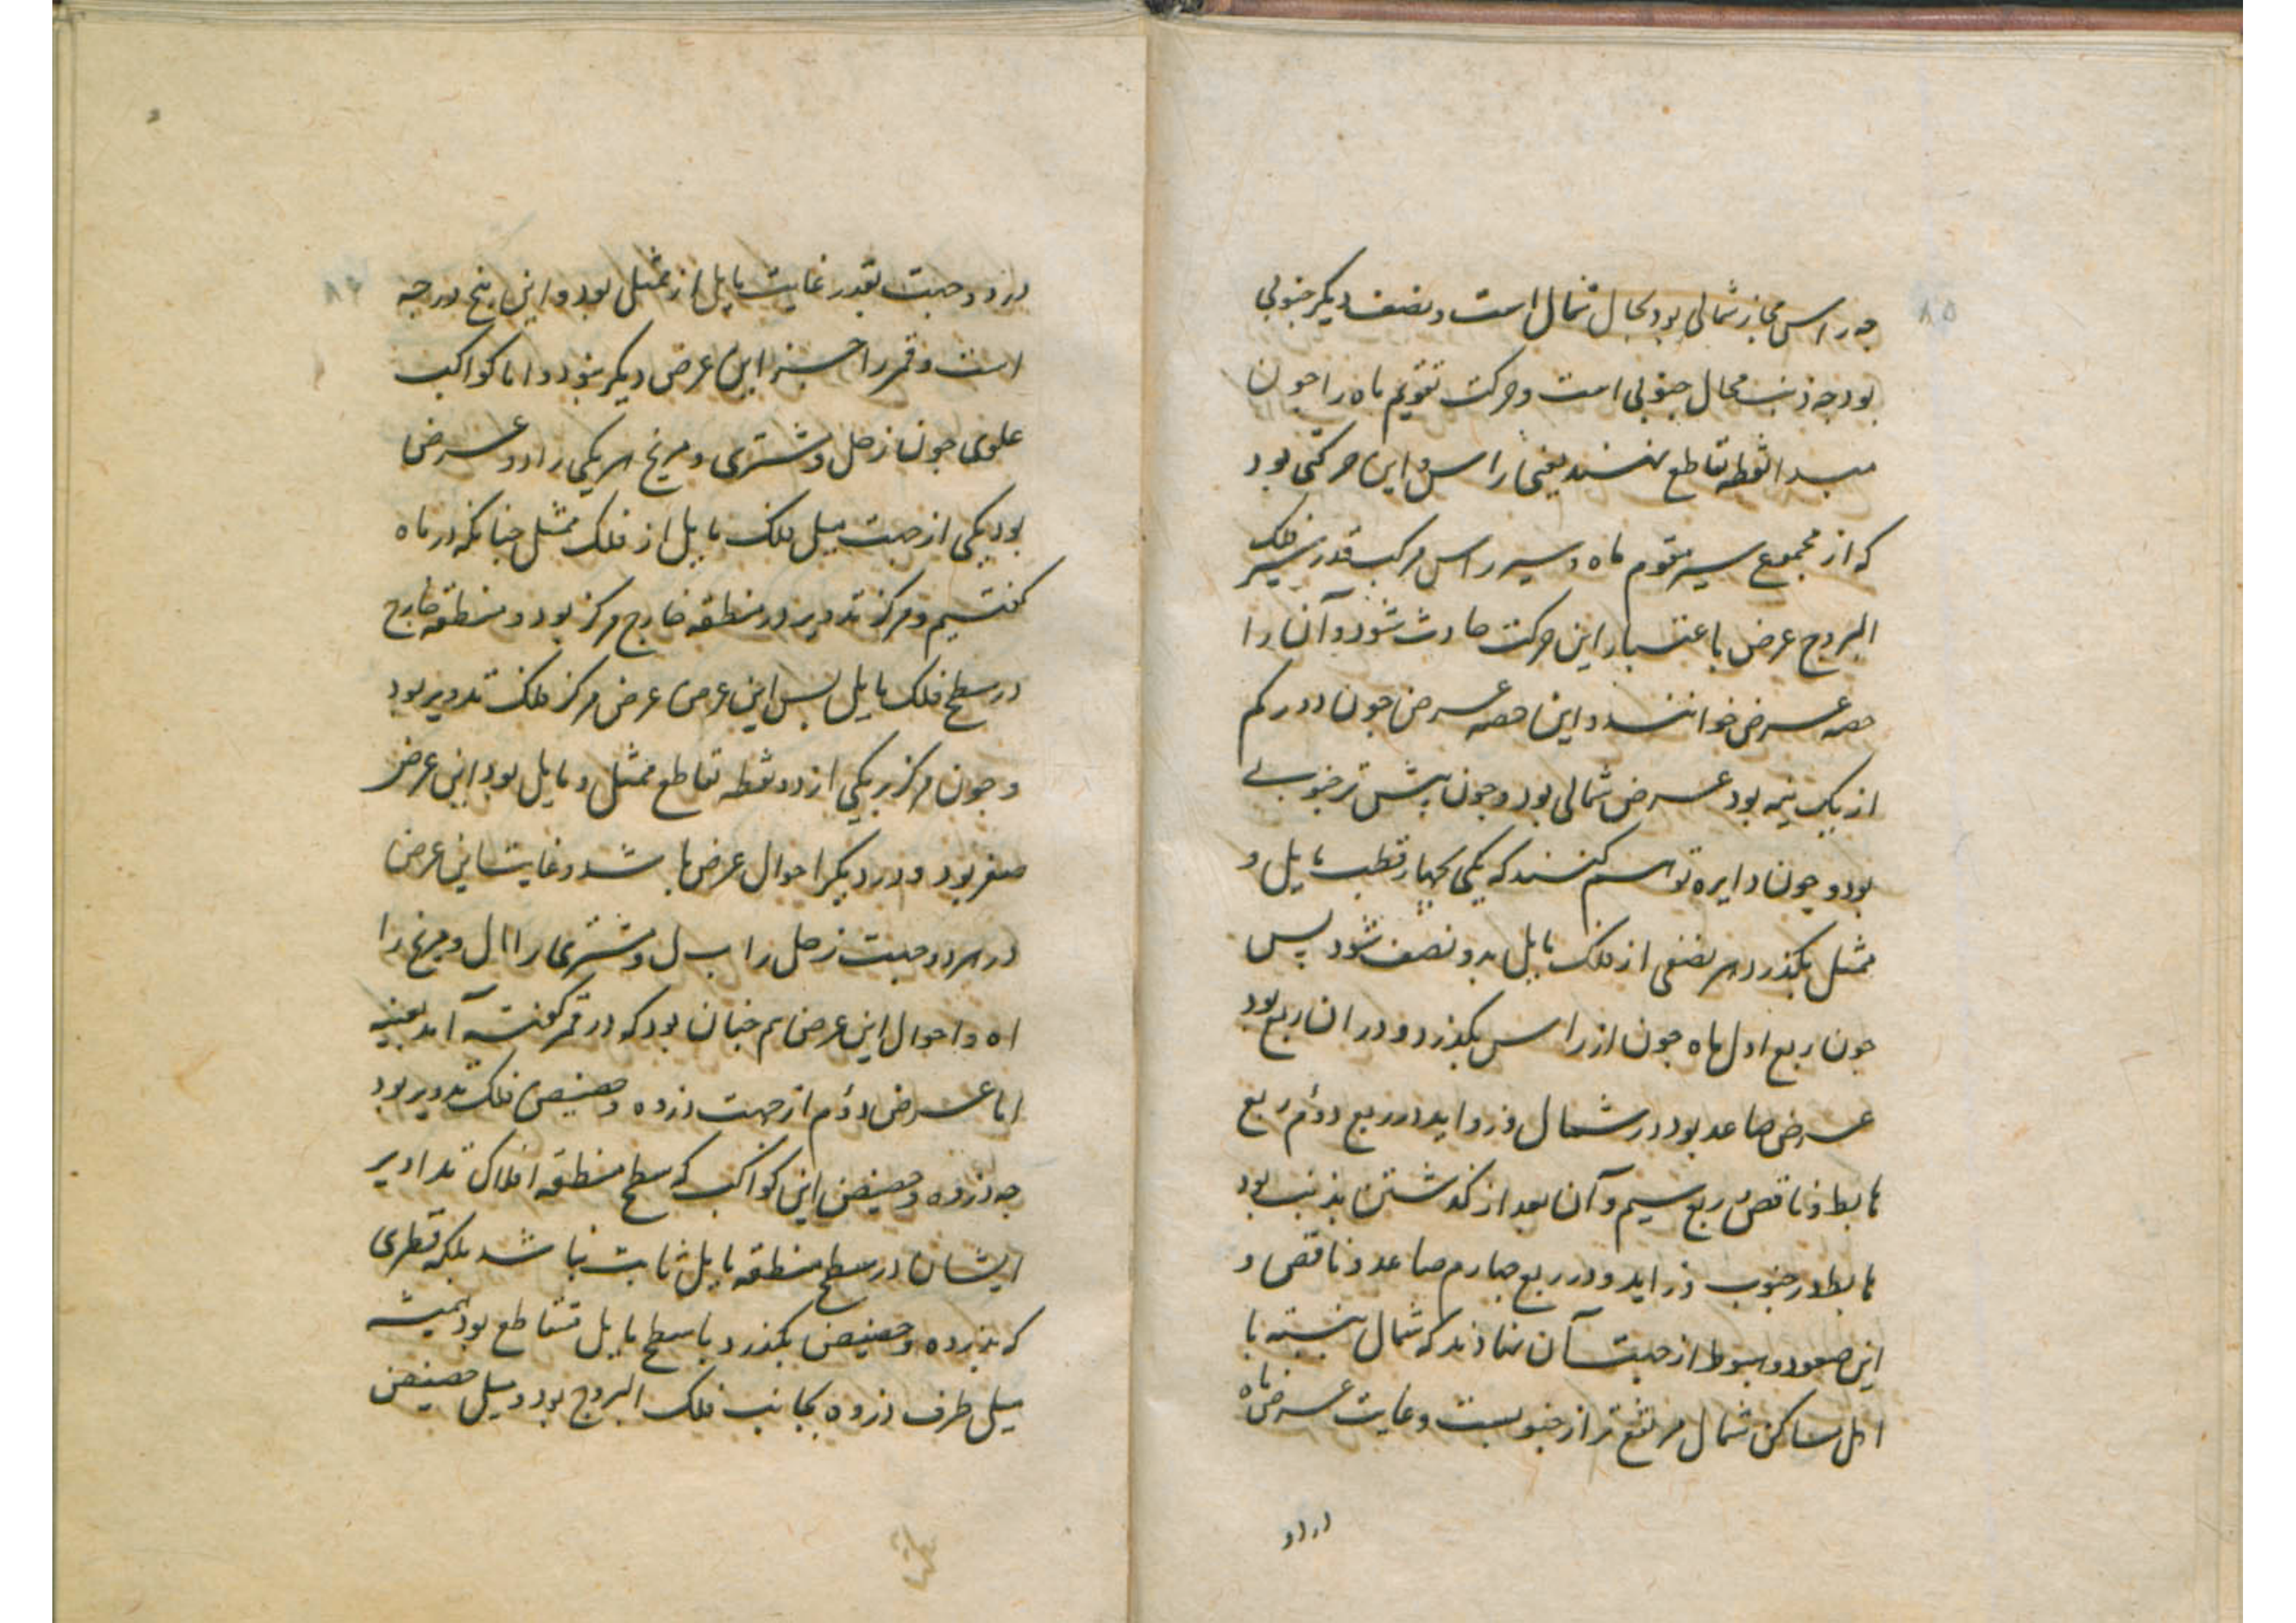 جه راس مجاز شمالی بود بحال شمال است و نصف دیگر جنوبی
بود جه ذنب محال جنوبی است و حرکت تقویم ماه را جون
مبدا نقطه تقاطع نهند یعنی راس و این حرکتی بود
که از مجموع سیر مقوم ماه و سیر راس مرکب قدر سیر فلک
البروج عرض باعتبار این حرکت حادث شود و آن را
حصه عرض خوانند و این حصه عرض جون ادور کم
از یک نیمه بود عرض شمالی بود و جون بیشتر جنوبی
بود و جون دایره توهم کنند که یکی بجهار قطب مایل و
ممثل بگذرد هر نصفی از فلک مایل بدو نصف شود پس
جون ربع اول ماه جون از راس بگذرد و در ان ربع بود
عرض صاعد بود در شمال و زواید در ربع دوم ربع
هابط و ناقص ربع سیم و آن بعد از گذشتن بذنب بود
هابط در جنوب زاید و در ربع جهارم صاعد و ناقص و
این صعود و هبوط از جهت آن نهادند که شمال بنسبه با
اهل مساکن شمال مرتفع تر از جنوبست و غایت عرض ماه
در دو
در دو جهت بقدر غایت مایل از ممثل بود و این پنج درجه
است و قمر را جز این عرض دیگر نبود و اما کواکب
علوی جون زحل و مشتری و مریخ هر یکی را دو عرض
بود یکی از جهت میل فلک مایل از فلک ممثل جنانکه در ماه
گفتیم و مرکز تدویر در منطقه خارج مرکز بود و منطقه خارج
در سطح فلک مایل پس این عرض عرض مرکز فلک تدویر بود
و جون مرکز بر یکی از دو نقطه تقاطع ممثل و مایل بود این عرض
صفر بود و در دیگر احوال عرض باشد و غایت این عرض
در هر دو جهت زحل را ب ل و مشتری را ا ل و مریخ را
ا ه و احوال این عرض هم جنان بود که در قمر گفته آمد بعینه
اما عرض دوم از جهت ذروه و حضیض فلک تدویر بود
جه ذروه و حضیض این کواکب که سطح منطقه افلاک تداویر
ایشان در سطح منطقه مایل ثابت نباشد بلکه قطری
که بذروه و حضیض بگذرد با سطح مایل متقاطع بود همیشه
میل طرف ذروه بجانب فلک البروج بود و میل حضیض